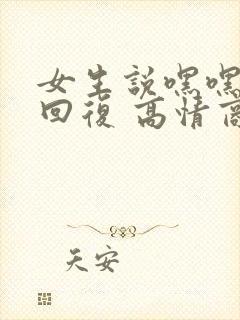 女生說嘿嘿
回復 高情商
天安